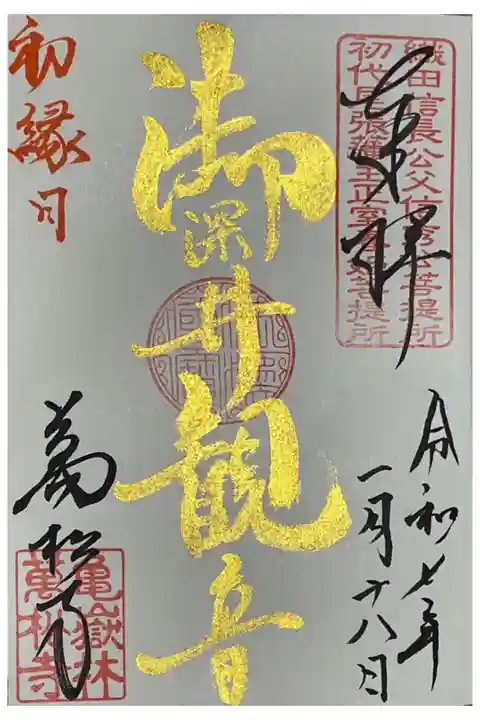 奉拝
織田信長公父信秀公菩提所
初代尾張藩主正室春姫菩提所
令和七年
一月十八日
御深井観音
初縁日
萬松寺
亀嶽林
萬松寺